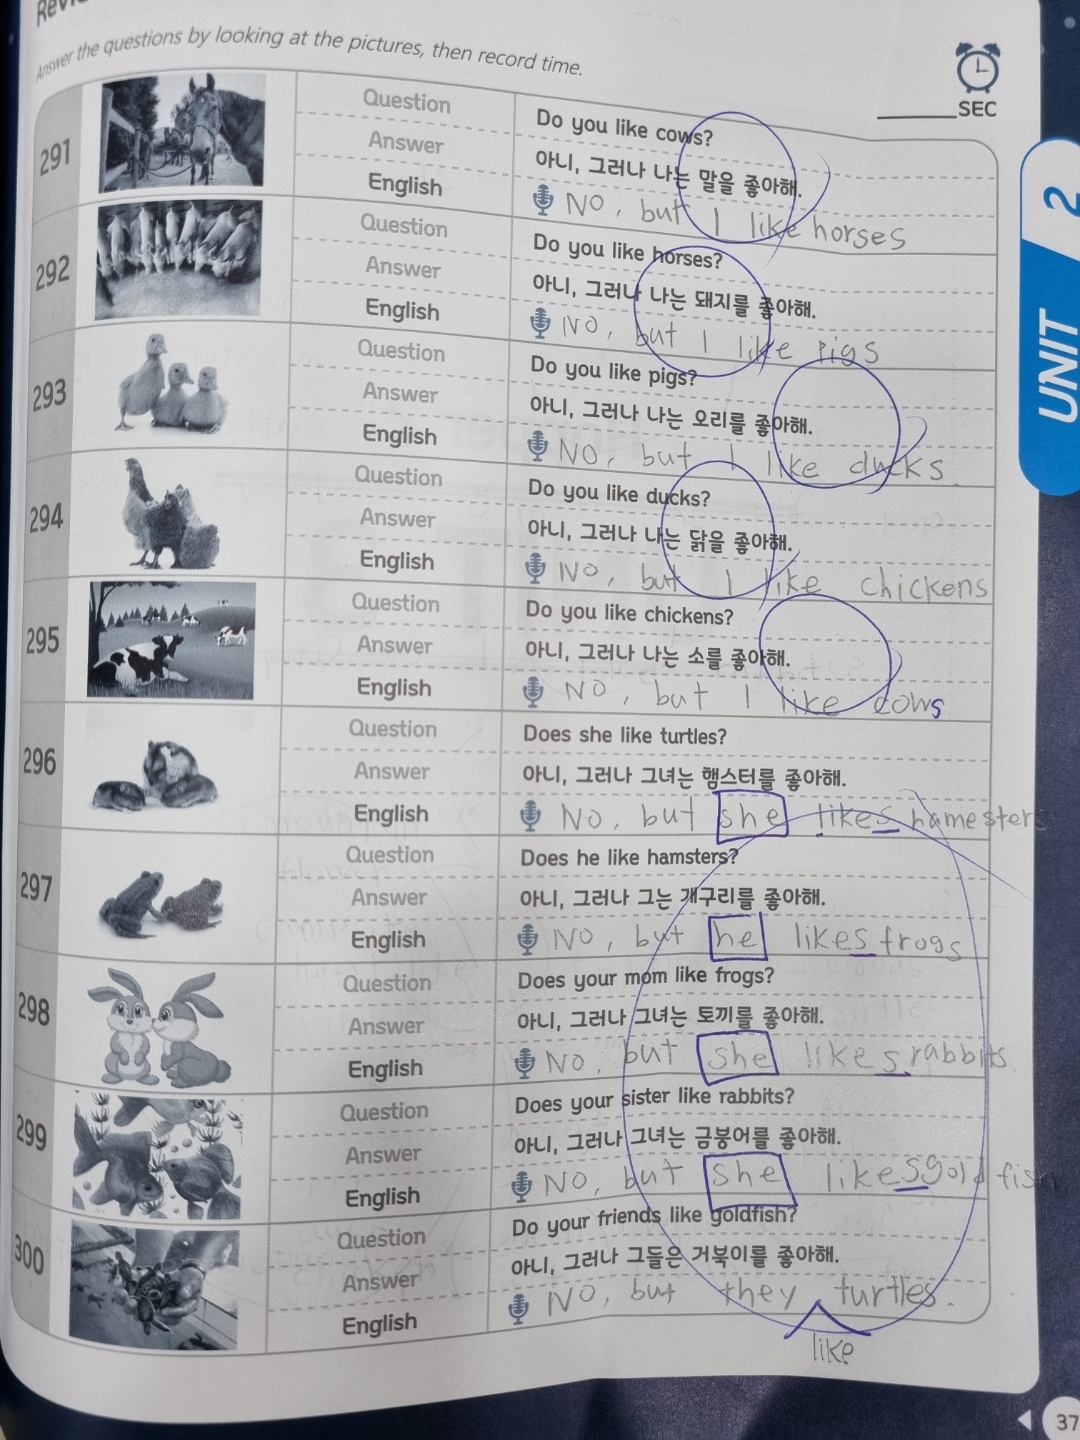 Answer the questions by looking at the pictures, then record time.
SEC
291
Question
Do you like cows?
Answer
아니, 그러나 나는 말을 좋아해.
English
NO, but I like horses
292
Question
Do you like horses?
Answer
아니, 그러나 나는 돼지를 좋아해.
English
NO, but I like pigs
293
Question
Do you like pigs?
Answer
아니, 그러나 나는 오리를 좋아해.
English
NO, but I like ducks.
294
Question
Do you like ducks?
Answer
아니, 그러나 나는 닭을 좋아해.
English
NO, but I like chickens
295
Question
Do you like chickens?
Answer
아니, 그러나 나는 소를 좋아해.
English
NO, but I like cows
296
Question
Does she like turtles?
Answer
아니, 그러나 그녀는 햄스터를 좋아해.
English
No, but she likes hamester
297
Question
Does he like hamsters?
Answer
아니, 그러나 그는 개구리를 좋아해.
English
NO, but he likes frogs
298
Question
Does your mom like frogs?
Answer
아니, 그러나 그녀는 토끼를 좋아해.
English
No, but she likes rabbits
299
Question
Does your sister like rabbits?
Answer
아니, 그러나 그녀는 금붕어를 좋아해.
English
NO, but she likes gold fis
300
Question
Do your friends like goldfish?
Answer
아니, 그러나 그들은 거북이를 좋아해.
English
NO, but they turtles.
like
UNIT 2
37